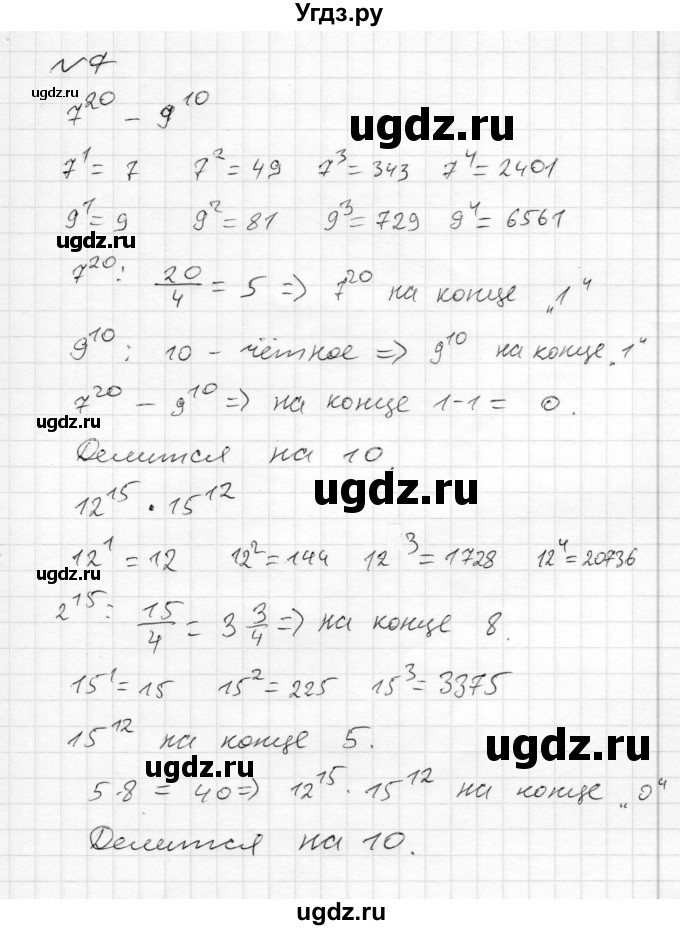 Угдз.ру
№7
ugdz.ru
7^20 − 9^10
ugdz.ru
7^1 = 7 7^2 = 49 7^3 = 343 7^4 = 2401
9^1 = 9 9^2 = 81 9^3 = 729 9^4 = 6561
ugdz.ru
7^20: 20/4 = 5 => 7^20 на конце „1“
9^10: 10 - чётное => 9^10 на конце „1“
7^20 − 9^10 => на конце 1-1 = 0.
ugdz.ru
Делится на 10.
ugdz.ru
12^15 · 15^12
12^1 = 12 12^2 = 144 12^3 = 1728 12^4 = 20736
ugdz.ru
2^15: 15/4 = 3 3/4 => на конце 8.
15^1 = 15 15^2 = 225 15^3 = 3375
15^12 на конце 5.
ugdz.ru
ugdz.ru
5·8 = 40 => 12^15 · 15^12 на конце „0“
Делится на 10.
ugdz.ru
ugdz.ru